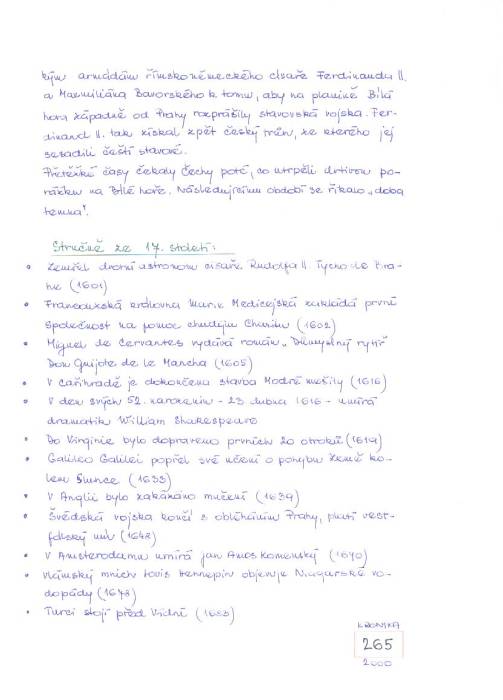 kým armádám římskoněmeckého císaře Ferdinanda II.
a Maxmiliána Bavorského k tomu, aby na planině Bílá
hora západně od Prahy rozprášily stavovská vojska. Fer-
dinand II. tak získal zpět český trůn, ze kterého jej
sesadili čeští stavové.
Přetěžké časy čekaly Čechy poté, co utrpěli drtivou po-
rážku na Bílé hoře. Následujícímu období se říkalo „doba
temna".
Stručně ze 17. století:
• Zemřel dvorní astronom císaře Rudolfa II. Tycho de Bra-
he (1601)
• Francouzská královna Marie Medicejská zakládá první
společnost na pomoc chudým Charitu (1602)
• Miguel de Cervantes vydává román „Důmyslný rytíř
Don Quijote de le Mancha (1605)
• V Cařihradě je dokončena stavba Modré mešity (1616)
• V den svých 52. narozenin - 23. dubna 1616 - umírá
dramatik William Shakespeare
• Do Virginie bylo dopraveno prvních 20 otroků (1619)
• Galileo Galilei popřel své učení o pohybu Země ko-
lem Slunce (1633)
• V Anglii bylo zakázáno mučení (1639)
• Švédská vojska končí s obléháním Prahy, platí vest-
fálský mír (1648)
• V Amsterodamu umírá Jan Amos Komenský (1670)
• Vlámský mnich Lovis Hennepin objevuje Niagarské vo-
dopády (1678)
• Turci stojí před Vídní (1683)
KRONIKA
265
2000